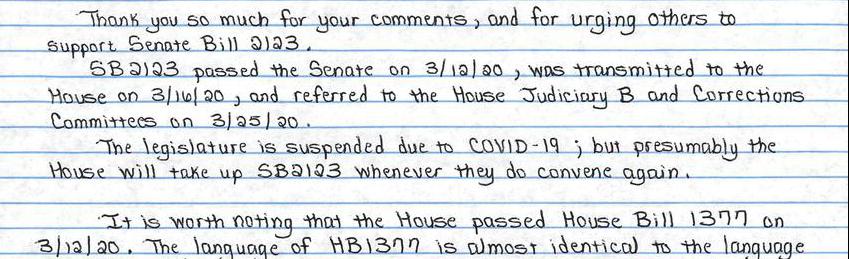 Thank you so much for your comments, and for urging others to
support Senate Bill 2123.
SB2123 passed the Senate on 3/12/20, was transmitted to the
House on 3/16/20, and referred to the House Judiciary B and Corrections
Committees on 3/25/20.
The legislature is suspended due to COVID-19; but presumably the
House will take up SB2123 whenever they do convene again.
It is worth noting that the House passed House Bill 1377 on
3/12/20. The language of HB1377 is almost identical to the language